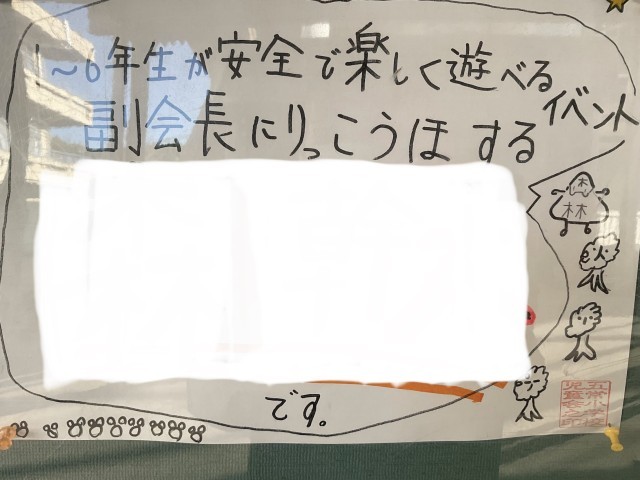 1～6年生が安全で楽しく遊べる
イベント
副会長にりっこうほする
です。
林